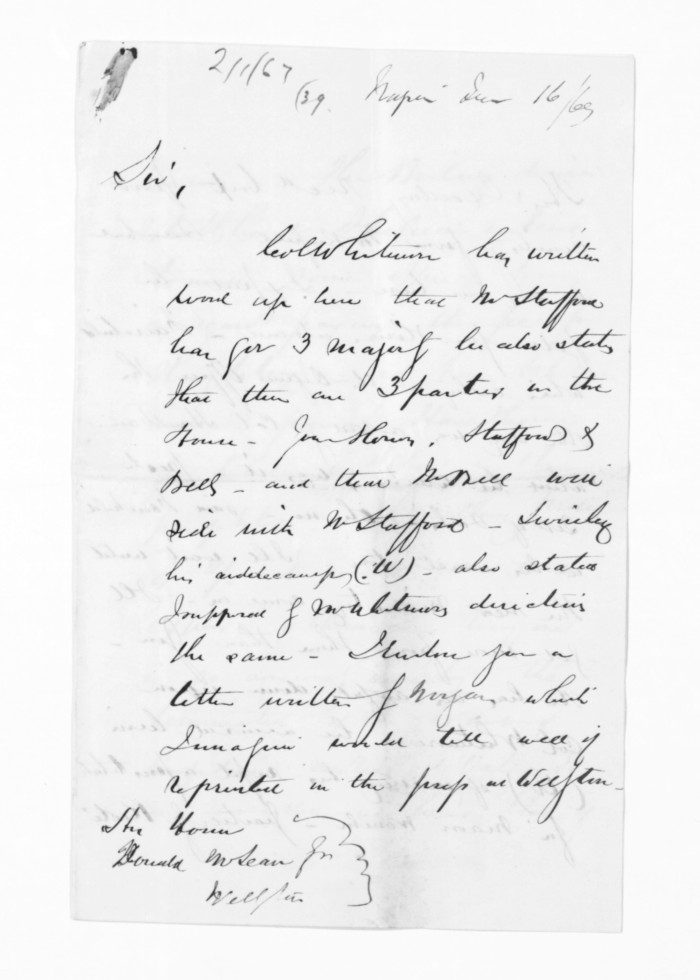 2/1/67
(39. Napier June 16/69
Sir,
Col Whitmore has written
word up here that Mr Stafford
has got 3 majority he also states
that there are 3 parties in the
House - Your Honor, Stafford &
Bell - and that Mr Bell will
side with Mr Stafford -
his aiddecamp (W) - also states
I suppose Whitmores
the same - I enclose you a
letter written by Morgan which
I imagine would tell well if
reprinted in the press at Wellgton -
His Honor
Donald McLean Esq
Wellgton